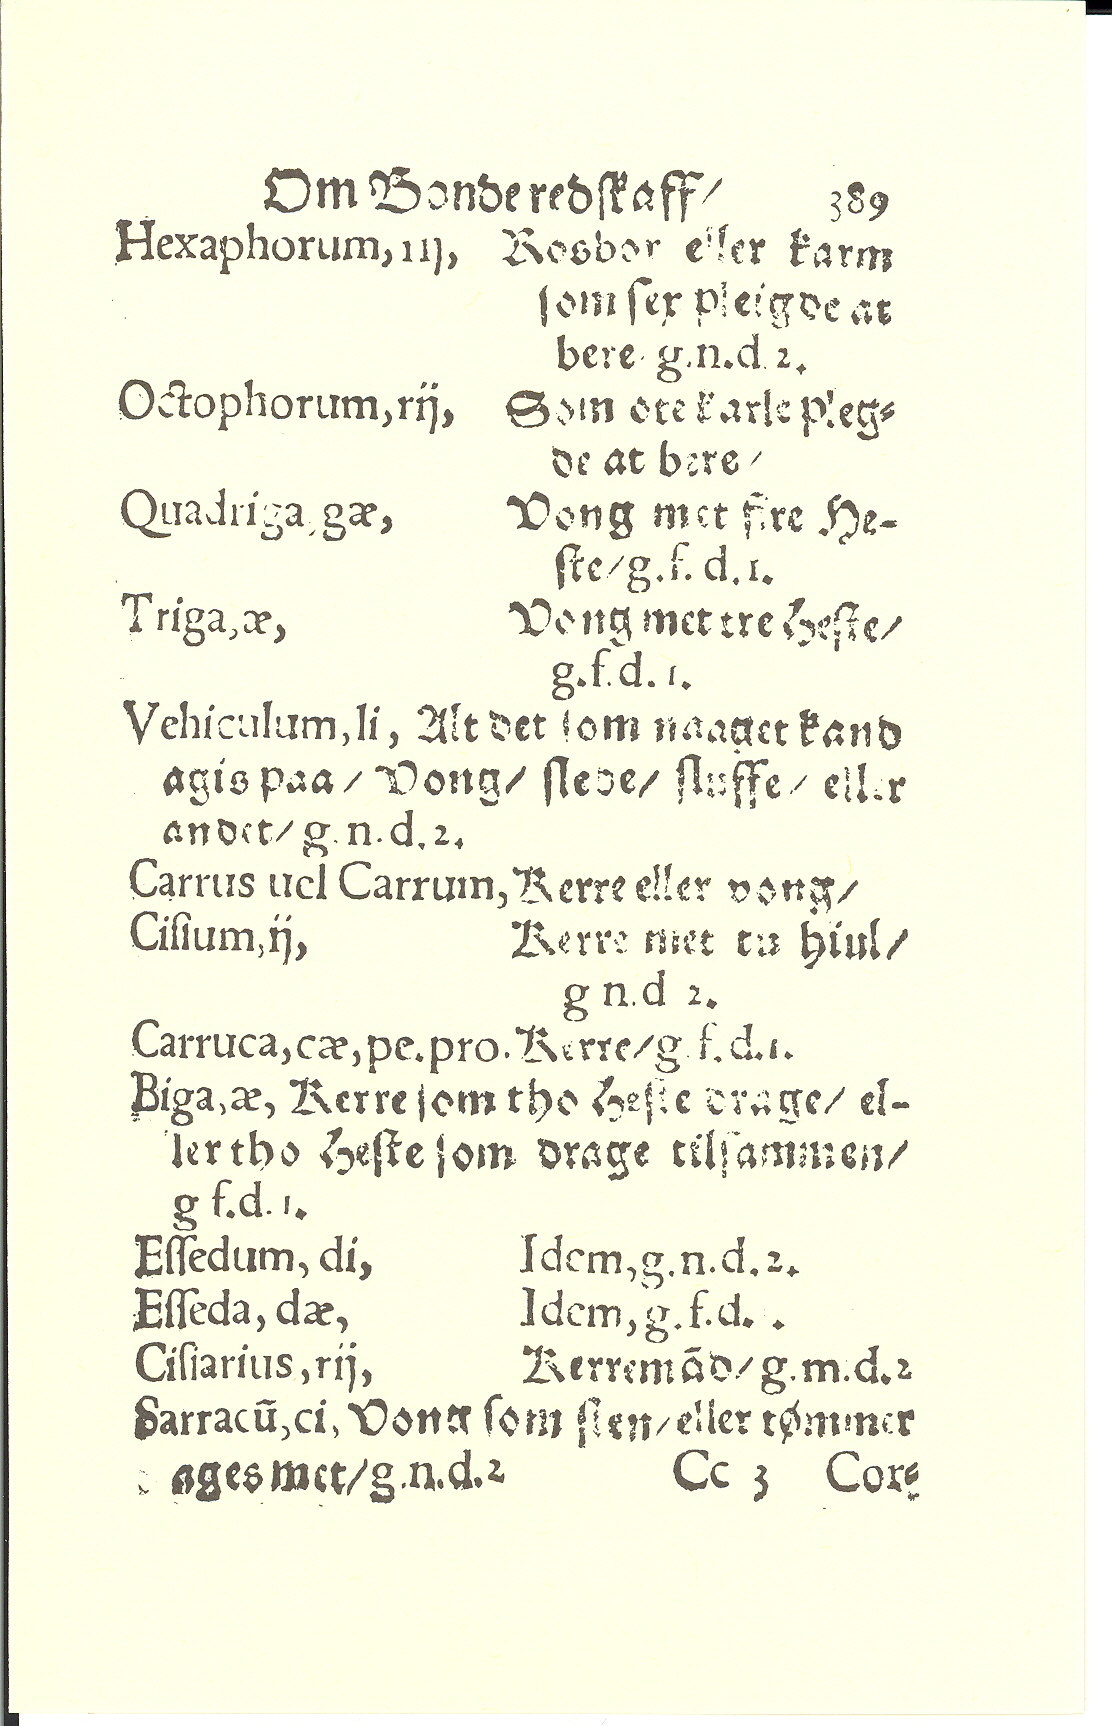 Om Bonde redſkaff/ 389
Hexaphorum, iij, Rosbor eller karm
ſom ſex pleigde at
bere g.n.d 2.
Octophorum, rij, Som ote karle pleg⸗
de at bere/
Quadriga, gæ, Vong met fire He-
ſte/ g.f.d.1.
Triga, æ, Vong met tre Heſte/
g.f.d.1.
Vehiculum, li, Alt det ſom naaget kand
agis paa/ Vong/ ſlede/ ſluffe/ eller
andet/ g.n.d.2.
Carrus uel Carrum, Kerre eller vong/
Ciſium, ij, Kerre met tu hiul/
g n.d 2.
Carruca, cæ, pe. pro. Kerre/ g f.d.1.
Biga, æ, Kerre ſom tho Heſte drage/ el-
ler tho Heſte ſom drage tilſammen/
g f.d.1.
Eſſedum, di, Idem, g.n.d.2.
Eſſeda, dæ, Idem, g.f.d. .
Ciſiarius, rij, Kerremãd/ g.m.d.2
Sarracũ, ci, Vong ſom ſten/ eller tømmer
ages met/ g.n.d.2 Cc 3 Cor⸗